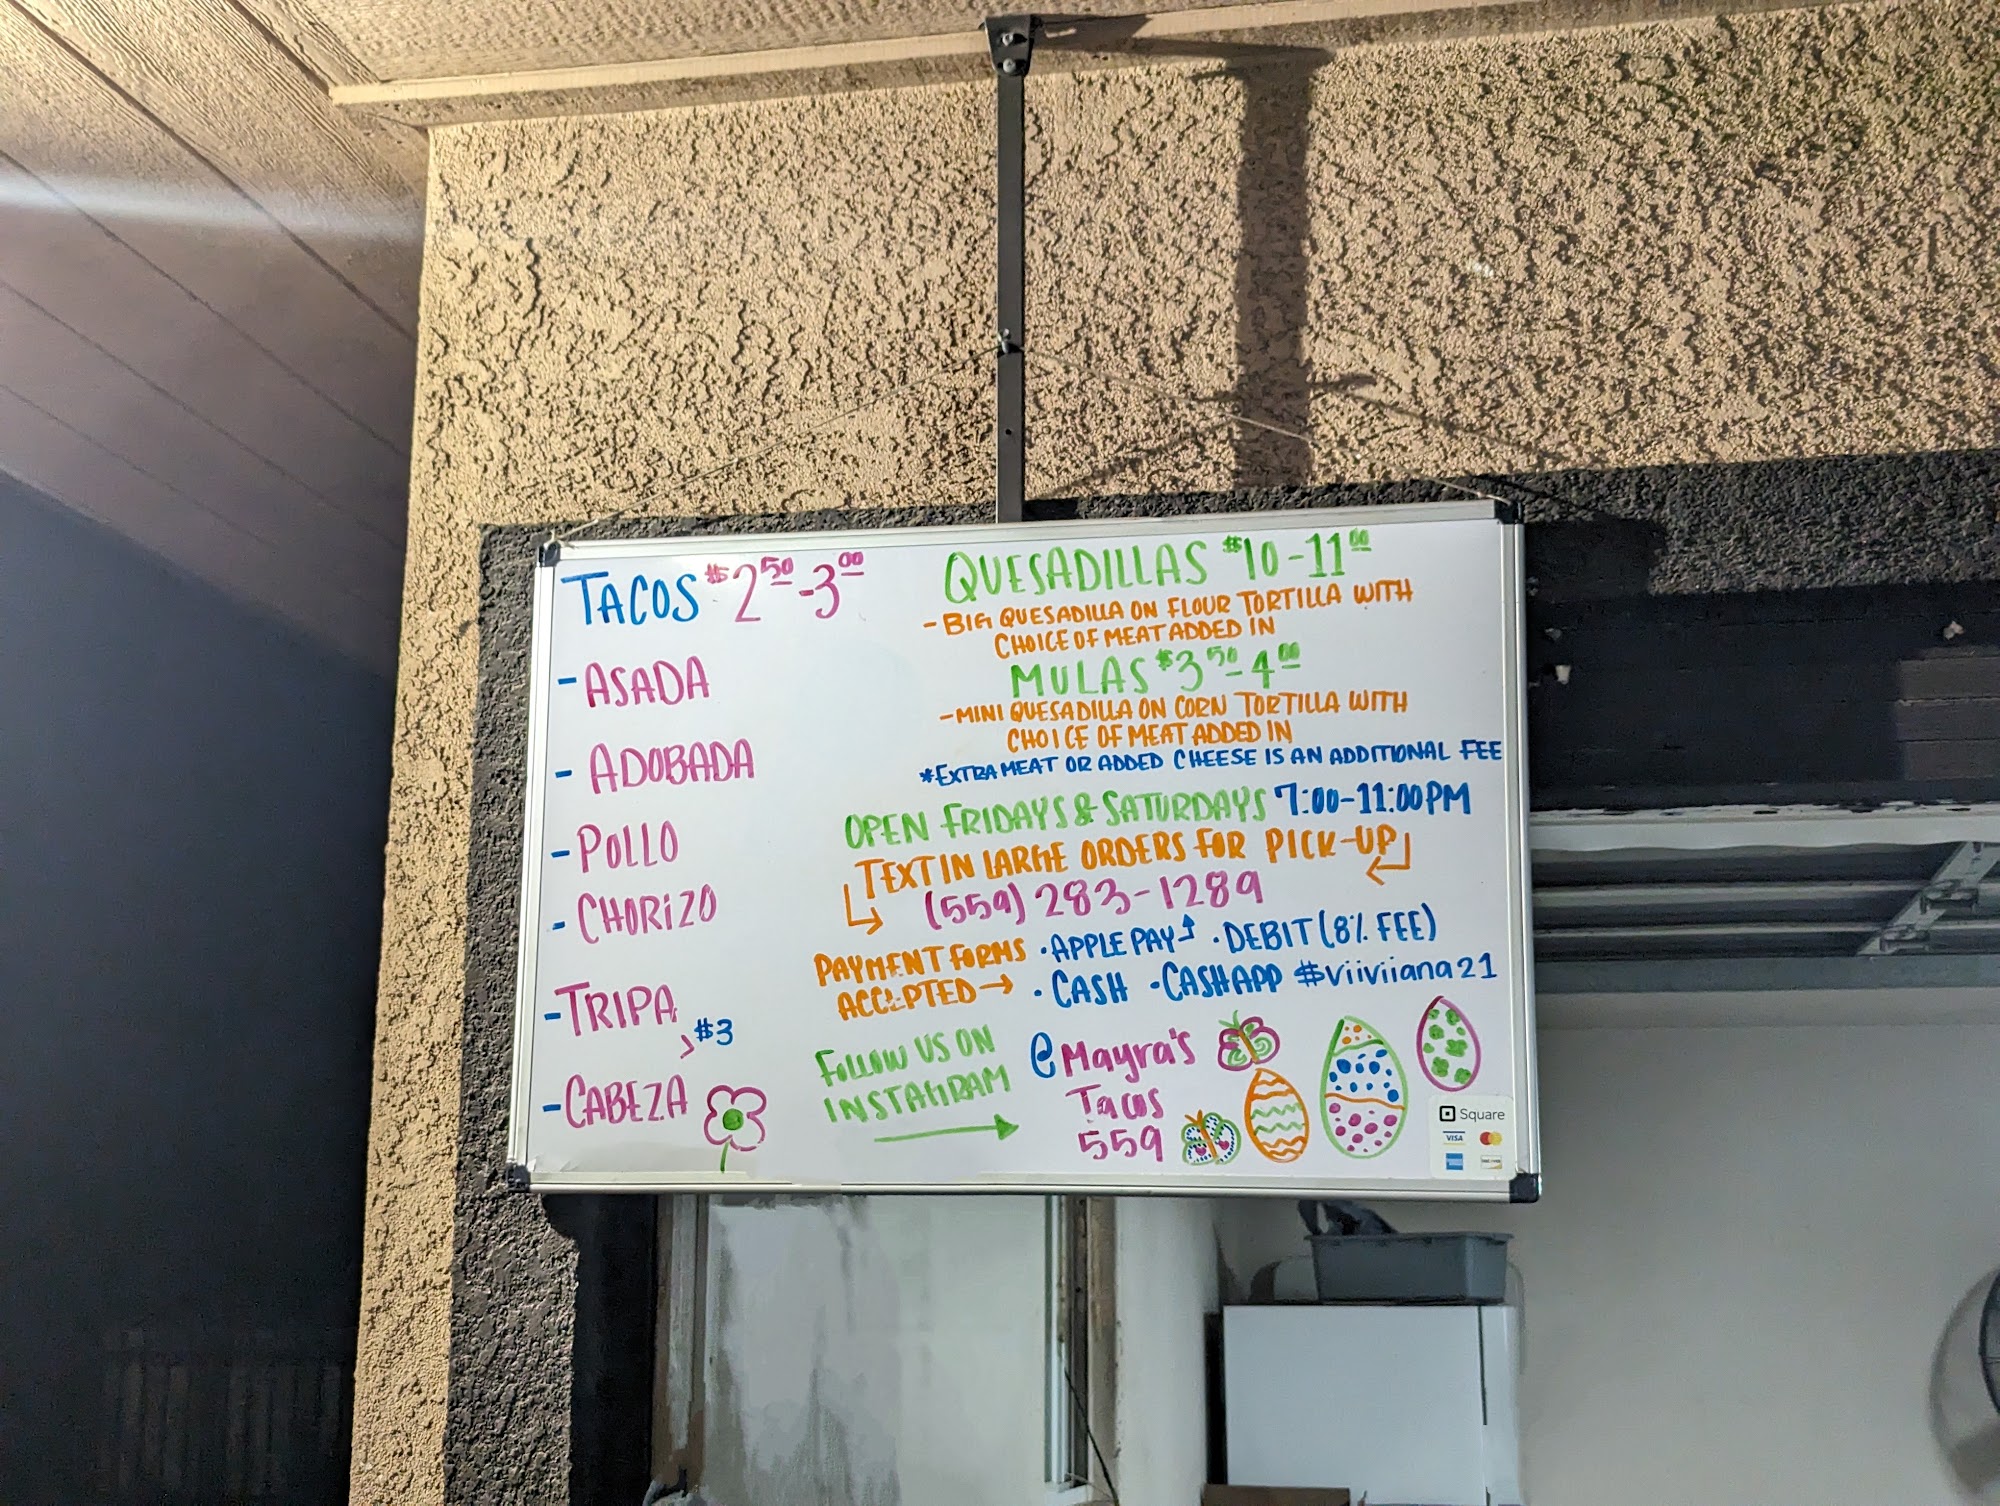 TACOS $2.50-3.00
- ASADA
- ADOBADA
- POLLO
- CHORIZO
- TRIPA
> $3
- CABEZA
QUESADILLAS $10-11.00
- BIG QUESADILLA ON FLOUR TORTILLA WITH
CHOICE OF MEAT ADDED IN
MULAS $3.50-4.00
- MINI QUESADILLA ON CORN TORTILLA WITH
CHOICE OF MEAT ADDED IN
*EXTRA MEAT OR ADDED CHEESE IS AN ADDITIONAL FEE
OPEN FRIDAYS & SATURDAYS 7:00-11:00PM
TEXT IN LARGE ORDERS FOR PICK-UP
(559) 283-1289
PAYMENT FORMS · APPLE PAY · DEBIT (8% FEE)
ACCEPTED → · CASH · CASHAPP $viiviiana21
FOLLOW US ON
INSTAGRAM
@Mayra's
Tacos
559
Square
VISA